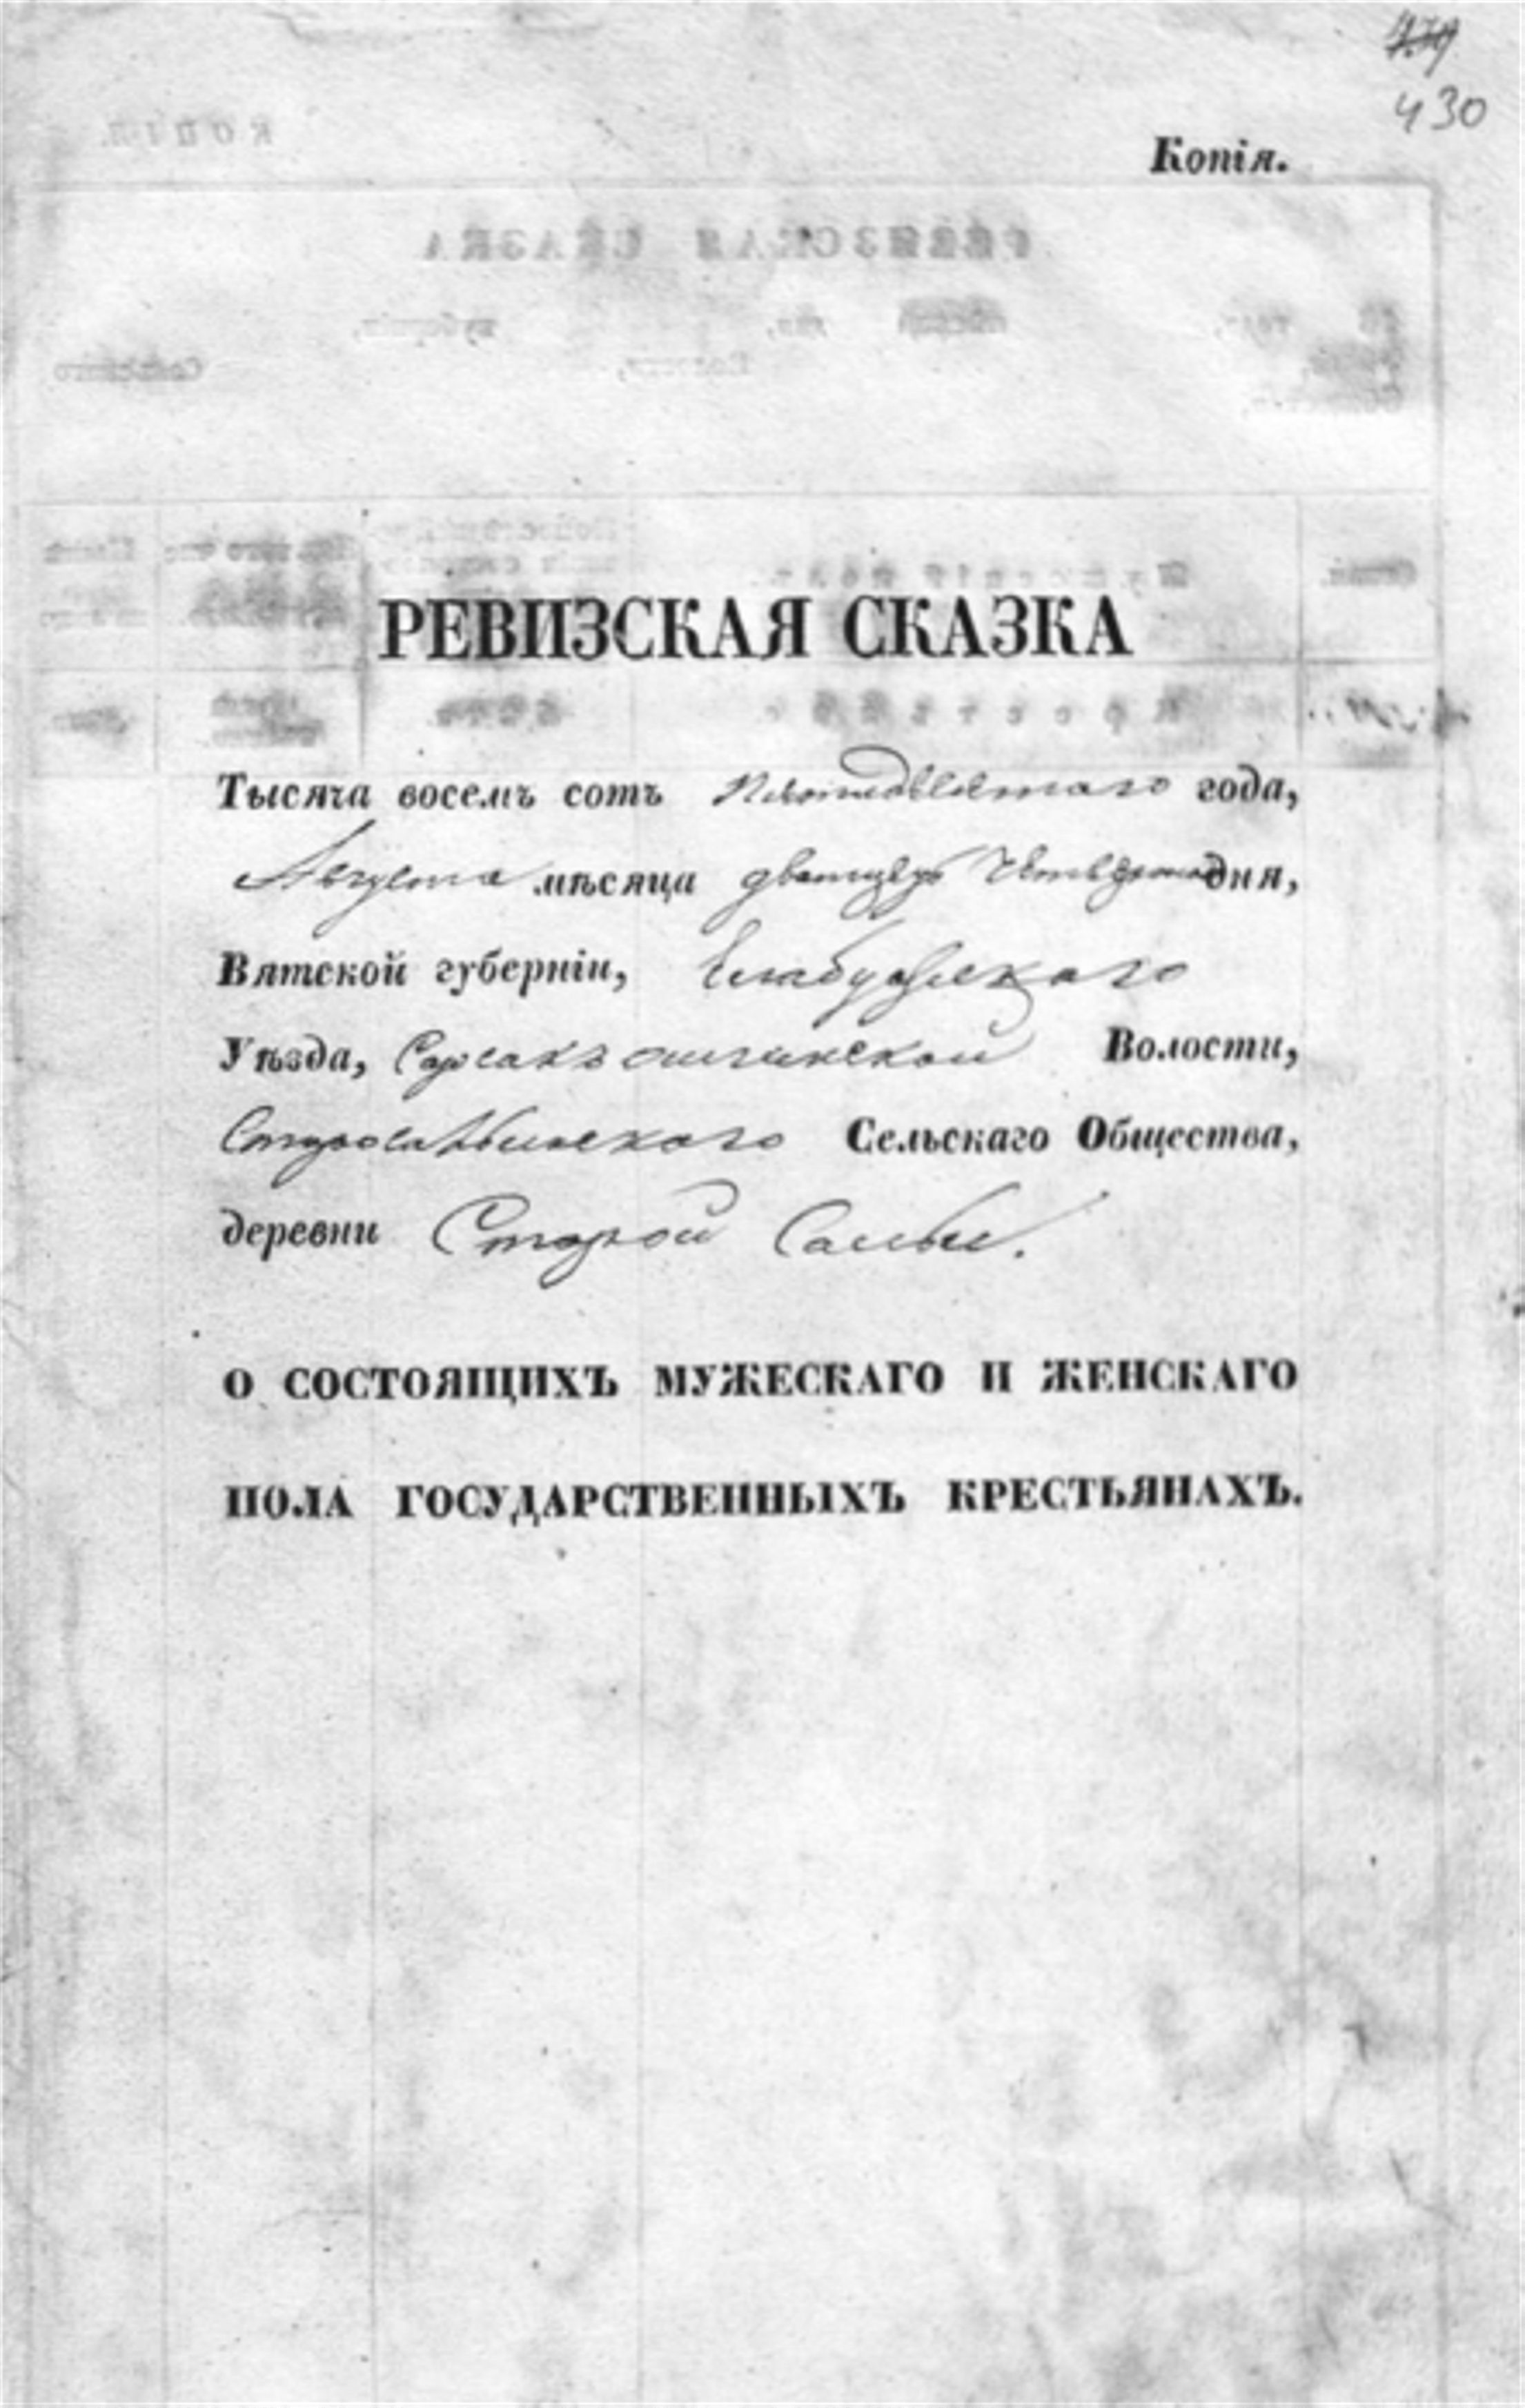 430
Копія.
РЕВИЗСКАЯ СКАЗКА
Тысяча восемъ сотъ пятидесятаго года,
Августа мѣсяца дватцать четвертаго дня,
Вятской губерніи, Елабужскаго
Уѣзда, Волости,
Сельскаго Общества,
деревни Старой
О СОСТОЯЩИХЪ МУЖЕСКАГО И ЖЕНСКАГО
ПОЛА ГОСУДАРСТВЕННЫХЪ КРЕСТЬЯНАХЪ.